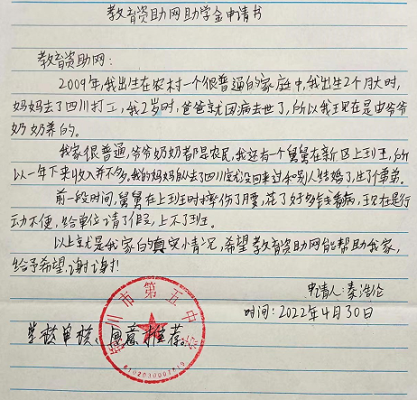 教育资助网助学金申请书
教育资助网:
2009年,我出生在农村一个很普通的家庭中,我出生2个月大时,
妈妈去了四川打工,我2岁时,爸爸就因病去世了,所以我现在是由爷爷
奶奶养的。
我家很普通,爷爷奶奶都是农民,我还有一个舅舅在新区上班,所
以一年下来收入并不多。我的妈妈自从去了四川就没回来过和别人结婚了,生了弟弟。
前一段时间,舅舅在上班时摔伤了腰,花了好多钱看病,现在是行
动不便,给单位请了假,上不了班。
以上就是我家的真实情况,希望教育资助网能帮助我家,
给予希望,谢谢!
申请人:秦浩伦
时间:2022年4月30日
学校审核,愿意推荐。
川市第五中学